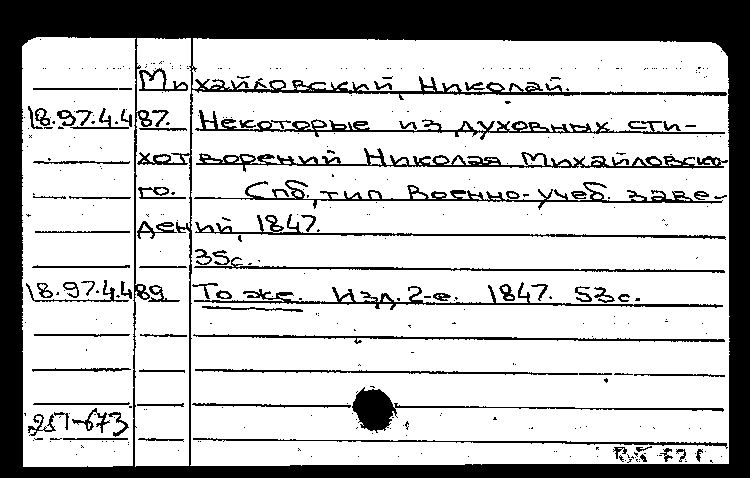 Михайловский, Николай.
18.97.4.487. Некоторые из духовных сти-
хотворений Николая Михайловско-
го. Спб, тип. Военно-учеб. заве-
дений, 1847.
35с.
18.97.4.489 То же. Изд. 2-е. 1847. 53с.
251-673